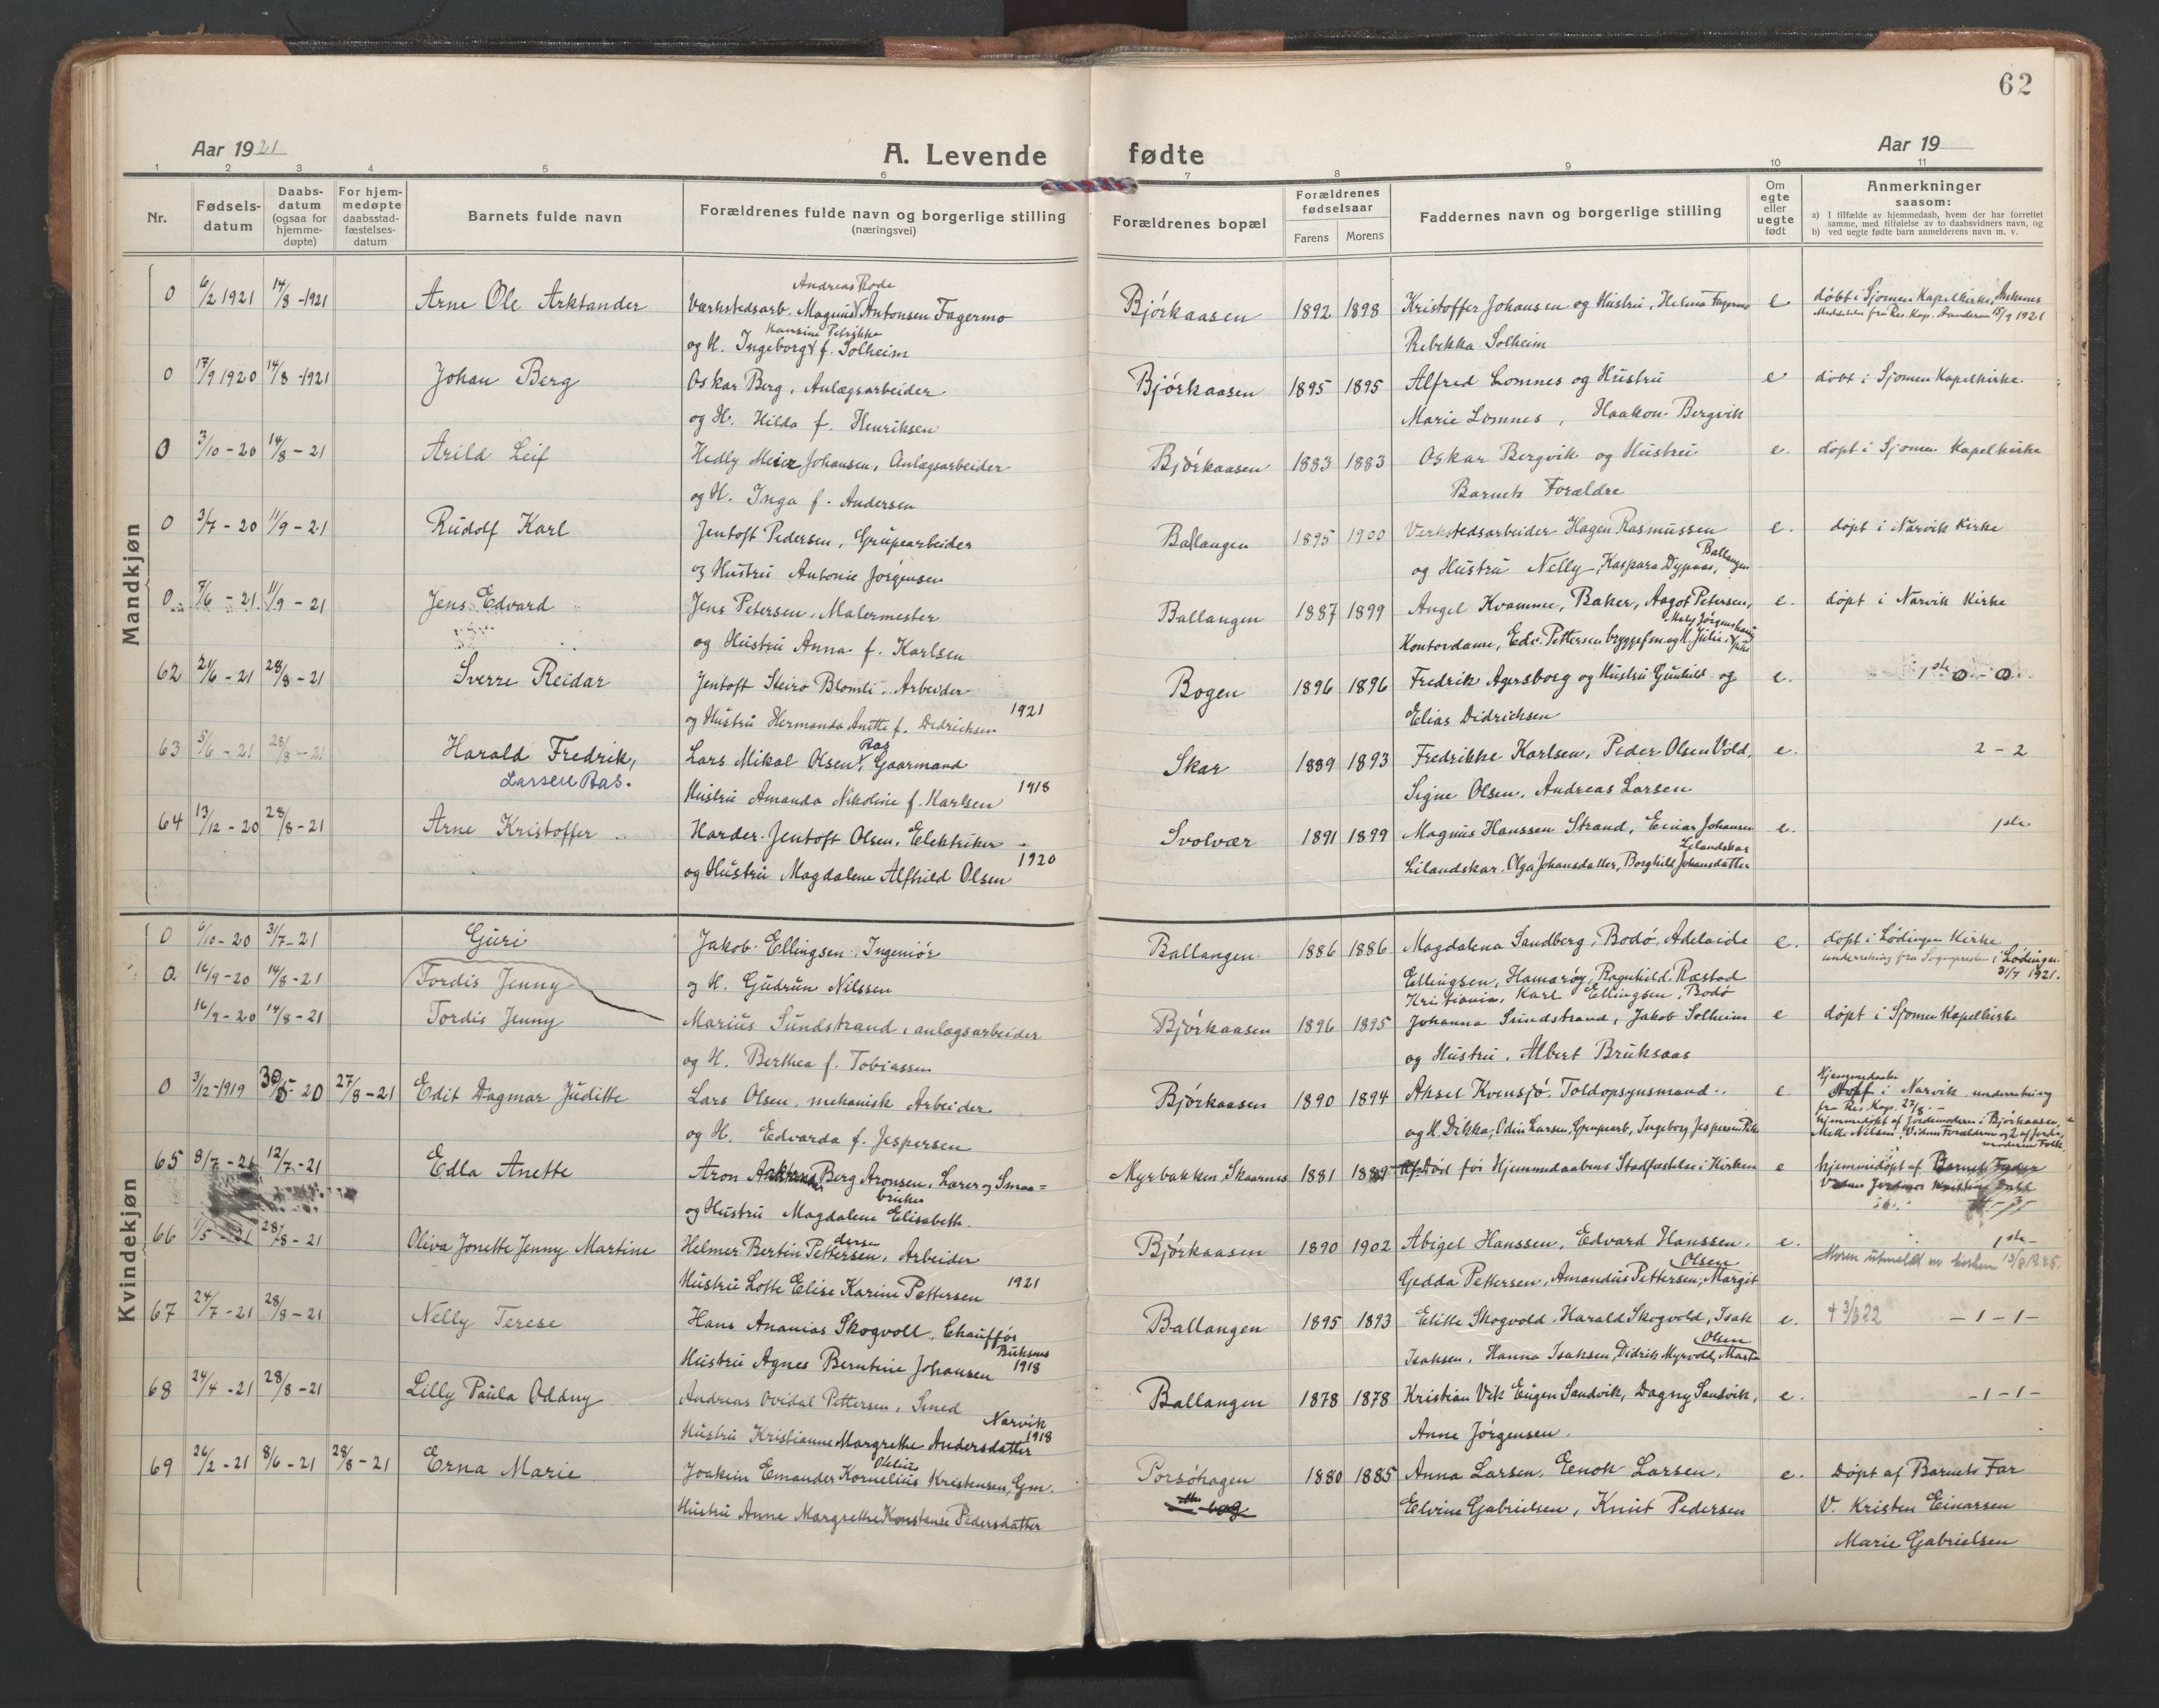 62
Aar 1921
A. Levende fødte
Aar 19
1 2 3 4 5 6 7 8 9 10 11
Nr.
Fødsels-
datum
Daabs-
datum
(ogsaa for
hjemme-
døpte)
For hjem-
medøpte
daabsstad-
fæstelses-
datum
Barnets fulde navn
Forældrenes fulde navn og borgerlige stilling
(næringsvei)
Forældrenes bopæl
Forældrenes
fødselsaar
Farens Morens
Faddernes navn og borgerlige stilling
Om
egte
eller
uegte
født
Anmerkninger
saasom:
a) I tilfælde av hjemmedaab, hvem der har forrettet
samme, med tilføielse av to daabsvidners navn, og
b) ved uegte fødte barn anmelderens navn m. v.
Mandkjøn
Andreas Rode
0 6/2 1921 14/8 -1921 Arne Ole Arktander Værkstedsarb. Magnus Antonsen Fagermo Bjørkaasen 1892 1898 Kristoffer Johansen og Hustru, Helma Fagermo e døbt i Sjomen Kapelkirke, Ankenes
Meddelelse fra Res. Kap. 15/9 1921
Hansine Petrikke
og H. Ingeborg f. Solheim Rebekka Solheim
0 17/9 1920 14/8 -1921 Johan Berg Oskar Berg, Anlægsarbeider Bjørkaasen 1895 1895 Alfred Lomnes og Hustru e døbt i Sjomen Kapelkirke.
og H. Hilda f. Henriksen Marie Lomnes, Haakon Bergvik
0 3/10 - 20 14/8 - 21 Arild Leif Hedly Meier Johansen, Anlægsarbeider Bjørkaasen 1883 1883 Oskar Bergvik og Hustru e. døpt i Sjomen Kapelkirke
og H. Inga f. Andersen Barnets Forældre
0 3/7 - 20 11/9 - 21 Rudolf Karl Jentoft Pedersen, Grubearbeider Ballangen 1895 1900 Verkstedsarbeider Hagen Rasmussen e. døpt i Narvik Kirke
og Hustru Antonie Jørgensen og Hustru Nelly, Kaspara Dypnas, Ballangen
0 7/6 - 21 11/9 - 21 Jens Edvard Jens Petersen, Malermester Ballangen 1887 1899 Angel Kvamme, Baker, Aagot Petersen, e. døpt i Narvik Kirke
og Hustru Anna f. Karlsen Kontordame, Edv. Pettersen bryggefm og H. Julie,
62 21/6 - 21 28/8 - 21 Sverre Reidar Jentoft Steiro Blomli. Arbeider Bogen 1896 1896 Fredrik Agersborg og Hustru Gunhild og e. 1ste 0 - 0
og Hustru Hermanda Anette f. Dedrichsen 1921 Elias Didrichsen
63 5/6 - 21 28/8 - 21 Harald Fredrik, Lars Mikal Olsen Ras, Gaarmand Skar 1889 1893 Fredrikke Karlsen, Peder Olsen Vold, e. 2 - 2
Larsen Ras. Hustru Amanda Nikoline f. Karlsen 1918 Signe Olsen, Andreas Larsen
64 13/12 - 20 28/8 - 21 Arne Kristoffer Harder Jentoft Olsen, Elektriker Svolvær 1891 1899 Magnus Hanssen Strand, Einar Johansen e. 1ste
Lilandskar
og Hustru Magdalene Alfhild Olsen 1920 Lilandskar. Olga Johansdatter, Borghild Johansdatter
Kvindekjøn
0 6/10 - 20 31/7 - 21 Guri Jakob Ellingsen, Ingeniør Ballangen 1886 1886 Magdalena Sandberg, Bodø, Adelaide e. døpt i Lødingen Kirke
underretning fra Sognepresten i Lødingen
31/7 1921.
0 16/9 - 20 14/8 - 21 Tordis Jenny og H. Gudrun Nilssen Ellingsen, Hamarøy, Ragnhild Ræstad
Kristiania, Karl Ellingsen, Bodø
16/9 - 20 14/8 - 21 Tordis Jenny Marius Sundstrand, anlægsarbeider Bjørkaasen 1896 1895 Johanna Sundstrand, Jakob Solheim e døpt i Sjomen Kapelkirke
og H. Berthea f. Tobiassen og Hustru, Albert Bruksaas
0 3/12-1919 30/5 - 20 27/8 - 21 Edit Dagmar Juditte Lars Olsen, mekanisk Arbeider Bjørkaasen 1890 1894 Aksel Kvensjø. Toldopsynsmand e. Hjemmedaabs
i Narvik underretning
fra Res. Kap. 27/8
hjemmedøpt af Jordemoderen i Bjørkaasen,
og H. Edvarda f. Jespersen og H. Dikka, Odin Larsen, Grupearb, Ingeborg Jespersen Mette Nilsen.
65 8/7 - 21 12/7 - 21 Edla Anette Aron Berg Aronsen, Lærer og Smaa=
bruker Myrbakken, Skaarnes 1881 Død før Hjemmedaabens Stadfæstelse i Kirken e hjemmedøpt af Barnets Fader
og Hustru Magdalene Elisabeth. - 3 -
66 1/5 - 21 28/8 - 21 Oliva Jonette Jenny Martine Helmer Bertin Pettersen, Arbeider Bjørkaasen 1890 1902 Abigel Hanssen, Edvard Hanssen, e. 1ste -
Moren utmeldt av kirken 13/8 1925.
Hustru Lotte Elise Karine Pettersen 1921 Gedda Pettersen, Amandus Pettersen, Margit Olsen
67 24/7 - 21 28/8 - 21 Nelly Terese Hans Ananias Skogvoll, Chauffør Ballangen 1895 1893 Elitte Skogvold, Harald Skogvold, Isak e. + 3/6 22 - 1 - 1 -
Buksnes
Hustru Agnes Berntine Johansen 1918 Isaksen, Hanna Isaksen, Didrik Myrvold, Marta Olsen
68 24/4 - 21 28/8 - 21 Lilly Paula Oddny Andreas Ovidal Pettersen, Smed Ballangen 1878 1878 Kristian Vik Eugen Sandvik, Dagny Sandvik, e. - 1 - 1 -
Narvik
Hustru Kristianne Margrethe Andersdatter 1918 Anne Jørgensen.
69 26/2 - 21 8/6 - 21 28/8 - 21 Erna Marie Joakim Emander Kornelius Kristensen, Gm. Porsøhagen 1880 1885 Anna Larsen, Eenok Larsen, e. Døpt af Barnets Far
Hustru Anne Margrethe Konstanse Pedersdatter Elvine Gabrielsen, Knut Pedersen V. Kristen Einarsen
Marie Gabrielsen